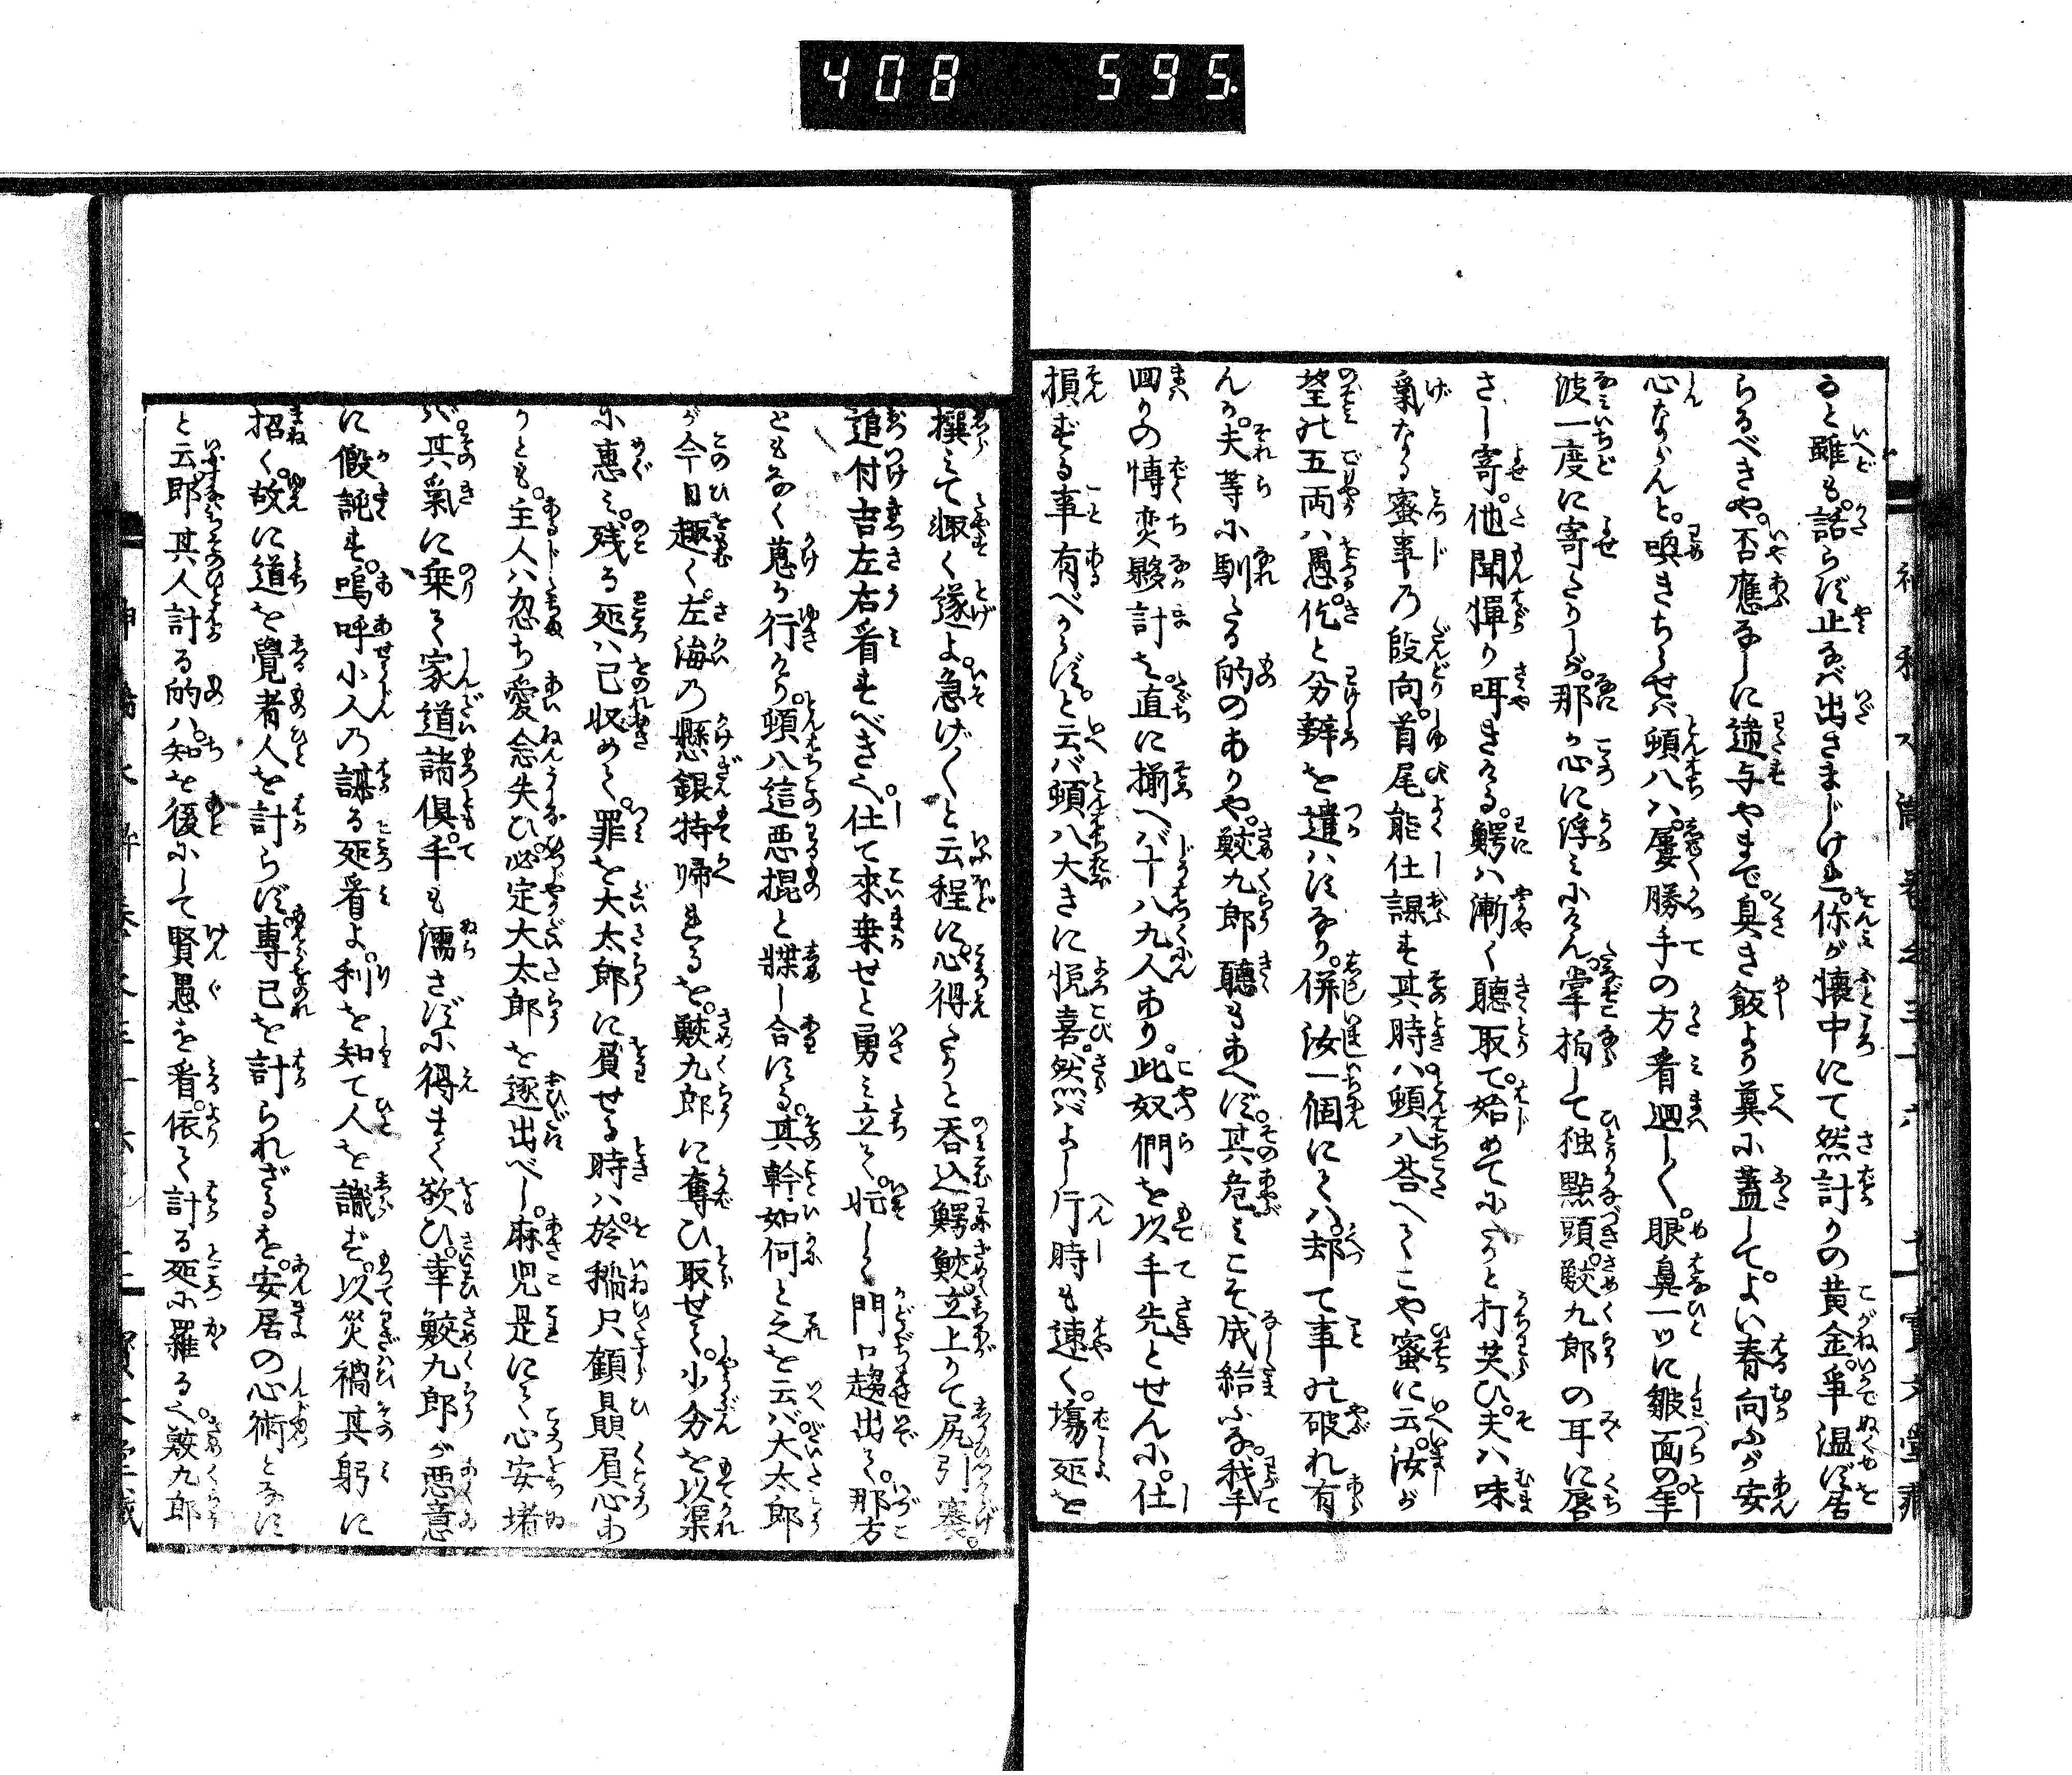 408 595.
ると雖も。話らず止なば出さまじけれ。你が懐中にて然計りの黄金。争温ず居
らるべきや。否應なしに遞与やまで。臭き飯より糞に蓋して。よい春向ふが安
心ならんと。喚きちらせば蝢八ハ。屡勝手の方看廻しく。眼鼻一ツに皺面の年
波一度に寄たりしが。那か心に浮みにけん。掌拍して独點頭。鮫九郎の耳に唇
さし寄。他聞憚り咡きける。鰐ハ漸く聴取て。始めてにこりと打笑ひ。夫ハ味
氣なる蜜事乃段向。首尾能仕課せ其時ハ
望の五両ハ愚。屹と分辧を遣ハすなり。併汝一個にてハ。却て事の破れ有
んか。夫等に馴たる的のありや。鮫九郎聴もあへず。其危みこそ成給ふな。我手
回りの博奕夥計を直に揃へバ十八九人あり。此奴們を以手先とせんに。仕
損ずる事有べからず。と云バ
八大きに悦喜。然バよし片時も速く。塲所を
撰みて輙く遂よ。急げくと云程に。心得たりと呑込鰐鮫。立上りて尻引褰。
追付吉左右看すべき也。仕て來乗せと勇み立て。忙しく門口趨出て。那方
ともなく
行けり。
八這悪棍と牒し合はする。其幹如何と之を云バ。大太郎
が今日趣く。左海乃懸銀持帰れるを。鮫九郎に奪ひ取せて。小分を以渠
に惠み。残る所ハ己収めて。罪を大太郎に負せる時ハ。於稲只顧贔屓心あ
りとも。主人ハ忽ち愛念失ひ。必定大太郎を逐出べし。麻児是にて心安堵
バ其氣に乗て家道諸倶。手も濡さずに得まく欲ひ。幸鮫九郎が悪意
に假詫せ。嗚呼小人の謀る所看よ。利を知て人を識ず。以災禍其躬に
招く。故に道を覺者人を計らず。専己を計られざるを。安居の心術となす
と云。即其人計る的ハ。知を後にして賢愚を看。依て計る所に羅る也。鮫九郎